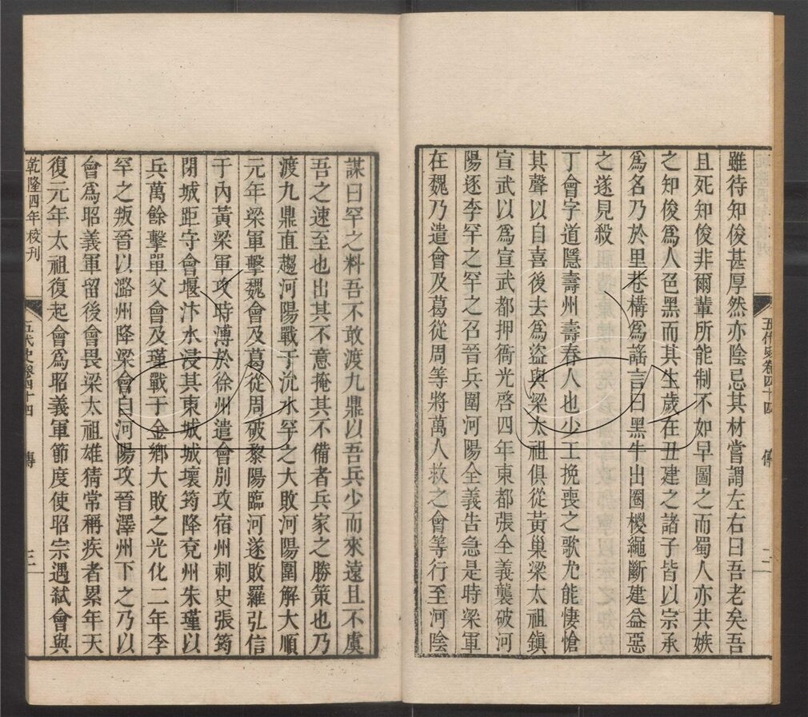 雖待知俊甚厚然亦陰忌其材嘗謂左右曰吾老矣吾
且死知俊非爾輩所能制不如早圖之而蜀人亦共嫉
之知俊爲人色黑而其生歲在丑建之諸子皆以宗承
爲名乃於里巷構爲謠言曰黑牛出圈椶繩斷建益惡
之遂見殺
丁會字道隱壽州壽春人也少工挽喪之歌尤能悽愴
其聲以自喜後去爲盜與梁太祖俱從黃巢梁太祖鎭
宣武以爲宣武都押衙光啓四年東都張全義襲破河
陽逐李罕之罕之召晉兵圍河陽全義告急是時梁軍
在魏乃遣會及葛從周等將萬人救之會等行至河陰
五代史卷四十四 傳 二
謀曰罕之料吾不敢渡九鼎以吾兵少而來遠且不虞
吾之速至也出其不意掩其不備者兵家之勝策也乃
渡九鼎直趨河陽戰于沇水罕之大敗河陽圍解大順
元年梁軍擊魏會及葛從周破黎陽臨河遂敗羅弘信
于內黃梁軍攻時溥於徐州遣會別攻宿州刺史張筠
閉城距守會堰汴水浸其東城城壞筠降兗州朱瑾以
兵萬餘擊單父會及瑾戰于金鄉大敗之光化二年李
罕之叛晉以潞州降梁會自河陽攻晉澤州下之乃以
會爲昭義軍留後會畏梁太祖雄猜常稱疾者累年天
復元年太祖復起會爲昭義軍節度使昭宗遇弑會與
乾隆四年校刊 五代史卷四十四 傳 三